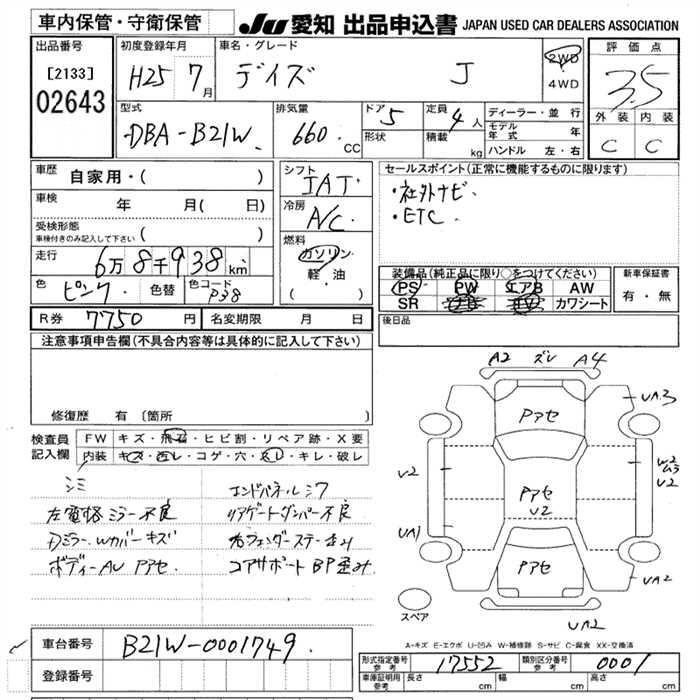 車内保管・守衛保管
JU 愛知 出品申込書 JAPAN USED CAR DEALERS ASSOCIATION
出品番号 [2133] 02643
初度登録年月 H25 7月
車名・グレード デイズ J
2WD 4WD
評価点 3.5
外装 内装 C C
型式 DBA-B21W
排気量 660 CC
ドア 5 形状
定員 4人 積載 kg
ディーラー・並行
モデル年式 年
ハンドル 左・右
車歴 自家用・( )
車検 年 月( 日)
受検形態 車検付きのみ記入して下さい ( )
走行 6万8千938km
色 ピンク 色替 色コード P38
シフト IAT
冷房 A/C
燃料 ガソリン 軽・油 ( ・ )
セールスポイント(正常に機能するものに限ります)
・社外ナビ
・ETC
装備品(純正品に限り○をつけてください)
PS PW エアB AW
SR ナビ TV カワシート
新車保証書 有・無
R券 7750円 名変期限 月 日
後日品
注意事項申告欄(不具合内容等は具体的に記入して下さい)
修復歴 有 [箇所
検査員記入欄
FW キズ・飛石・ヒビ割・リペア跡・X要
内装 キズ・汚レ・コゲ・穴・スレ・キレ・破レ
シミ
左電格ミラー不良
Dミラー、Wカバーキズ
ボディーAU Pアセ
エンドパネルシワ
リアゲートダンパー不良
右フェンダーステー歪み
コアサポートBP歪み
A2 ズレ A4
UA3
Pアセ
V2
Pアセ V2
W2 ムラ V2
UA1
Pアセ
UA2
スペア
UA2
A-キズ E-エクボ U-凹み W-補修跡 S-サビ C-腐食 XX-交換済
車台番号 B21W-0001749
登録番号
形式指定番号 参考 17552 類別区分番号 参考 0001
車庫証明用 参考 長さ cm 幅 cm 高さ cm